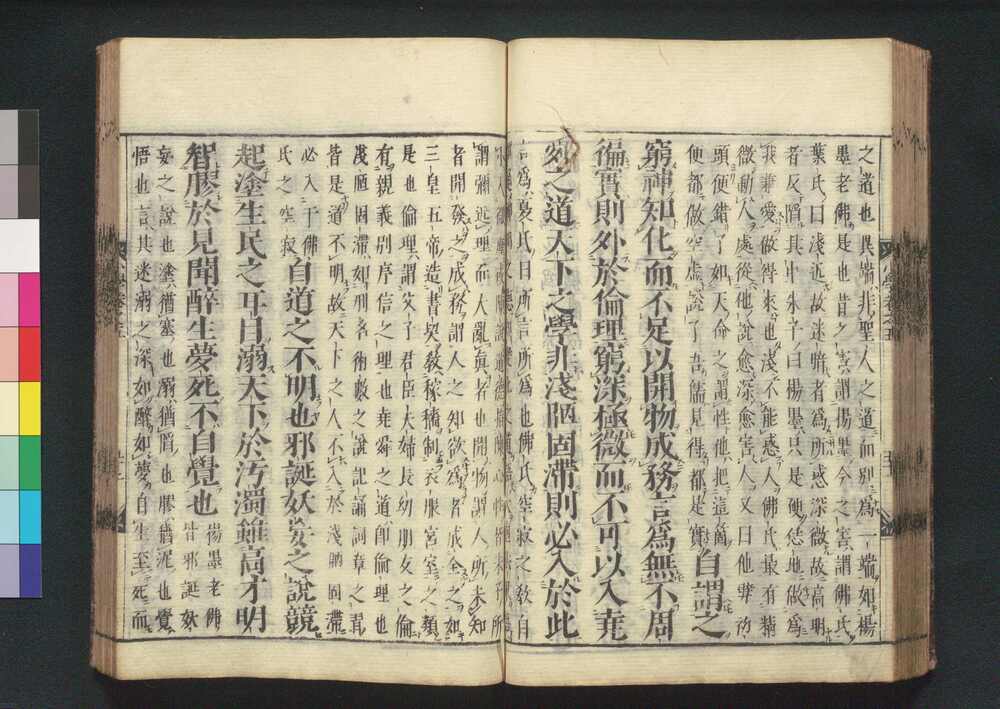 之道也異端非聖人之道而別爲一端如楊
墨老佛是也昔之害謂楊墨今之害謂佛氏
葉氏曰淺近故迷暗者爲所惑深微故高明
者反陷其中朱子曰楊墨只是硬恁地做爲
我兼愛做得來也淺不能惑人佛氏最有精
微動人處從他說愈深愈害人又曰他劈初
頭便錯了如天命之謂性他把這箇
便都做空虛說了吾儒見得都是實
自謂之
窮神知化而不足以開物成務言爲無不周
徧實則外於倫理窮深極微而不可以入堯
舜之道天下之學非淺陋固滯則必入於此
言爲夏氏曰所言所爲也佛氏空寂之敎自
謂彌近理而大亂眞者也開物謂人所未知
者開發之成務謂人之欲爲者成全之
三皇五帝造書契敎稼穡制衣服宮室之類
是也倫理謂父子君臣夫婦長幼朋友之倫
有親義別序信之理也堯舜之道卽倫理也
淺陋固滯如刑名術數之說記誦詞章之習
皆是道不明故天下之人不入於淺陋固滯
必入于佛
氏之空寂
自道之不明也邪誕妖妄之說競
起塗生民之耳目溺天下於汚濁雖高才明
智膠於見聞醉生夢死不自覺也
楊墨老佛
皆邪誕妖
妄之說也塗猶塞也溺猶陷也膠猶泥也覺
悟也言其迷溺之深如醉如夢自生至死而